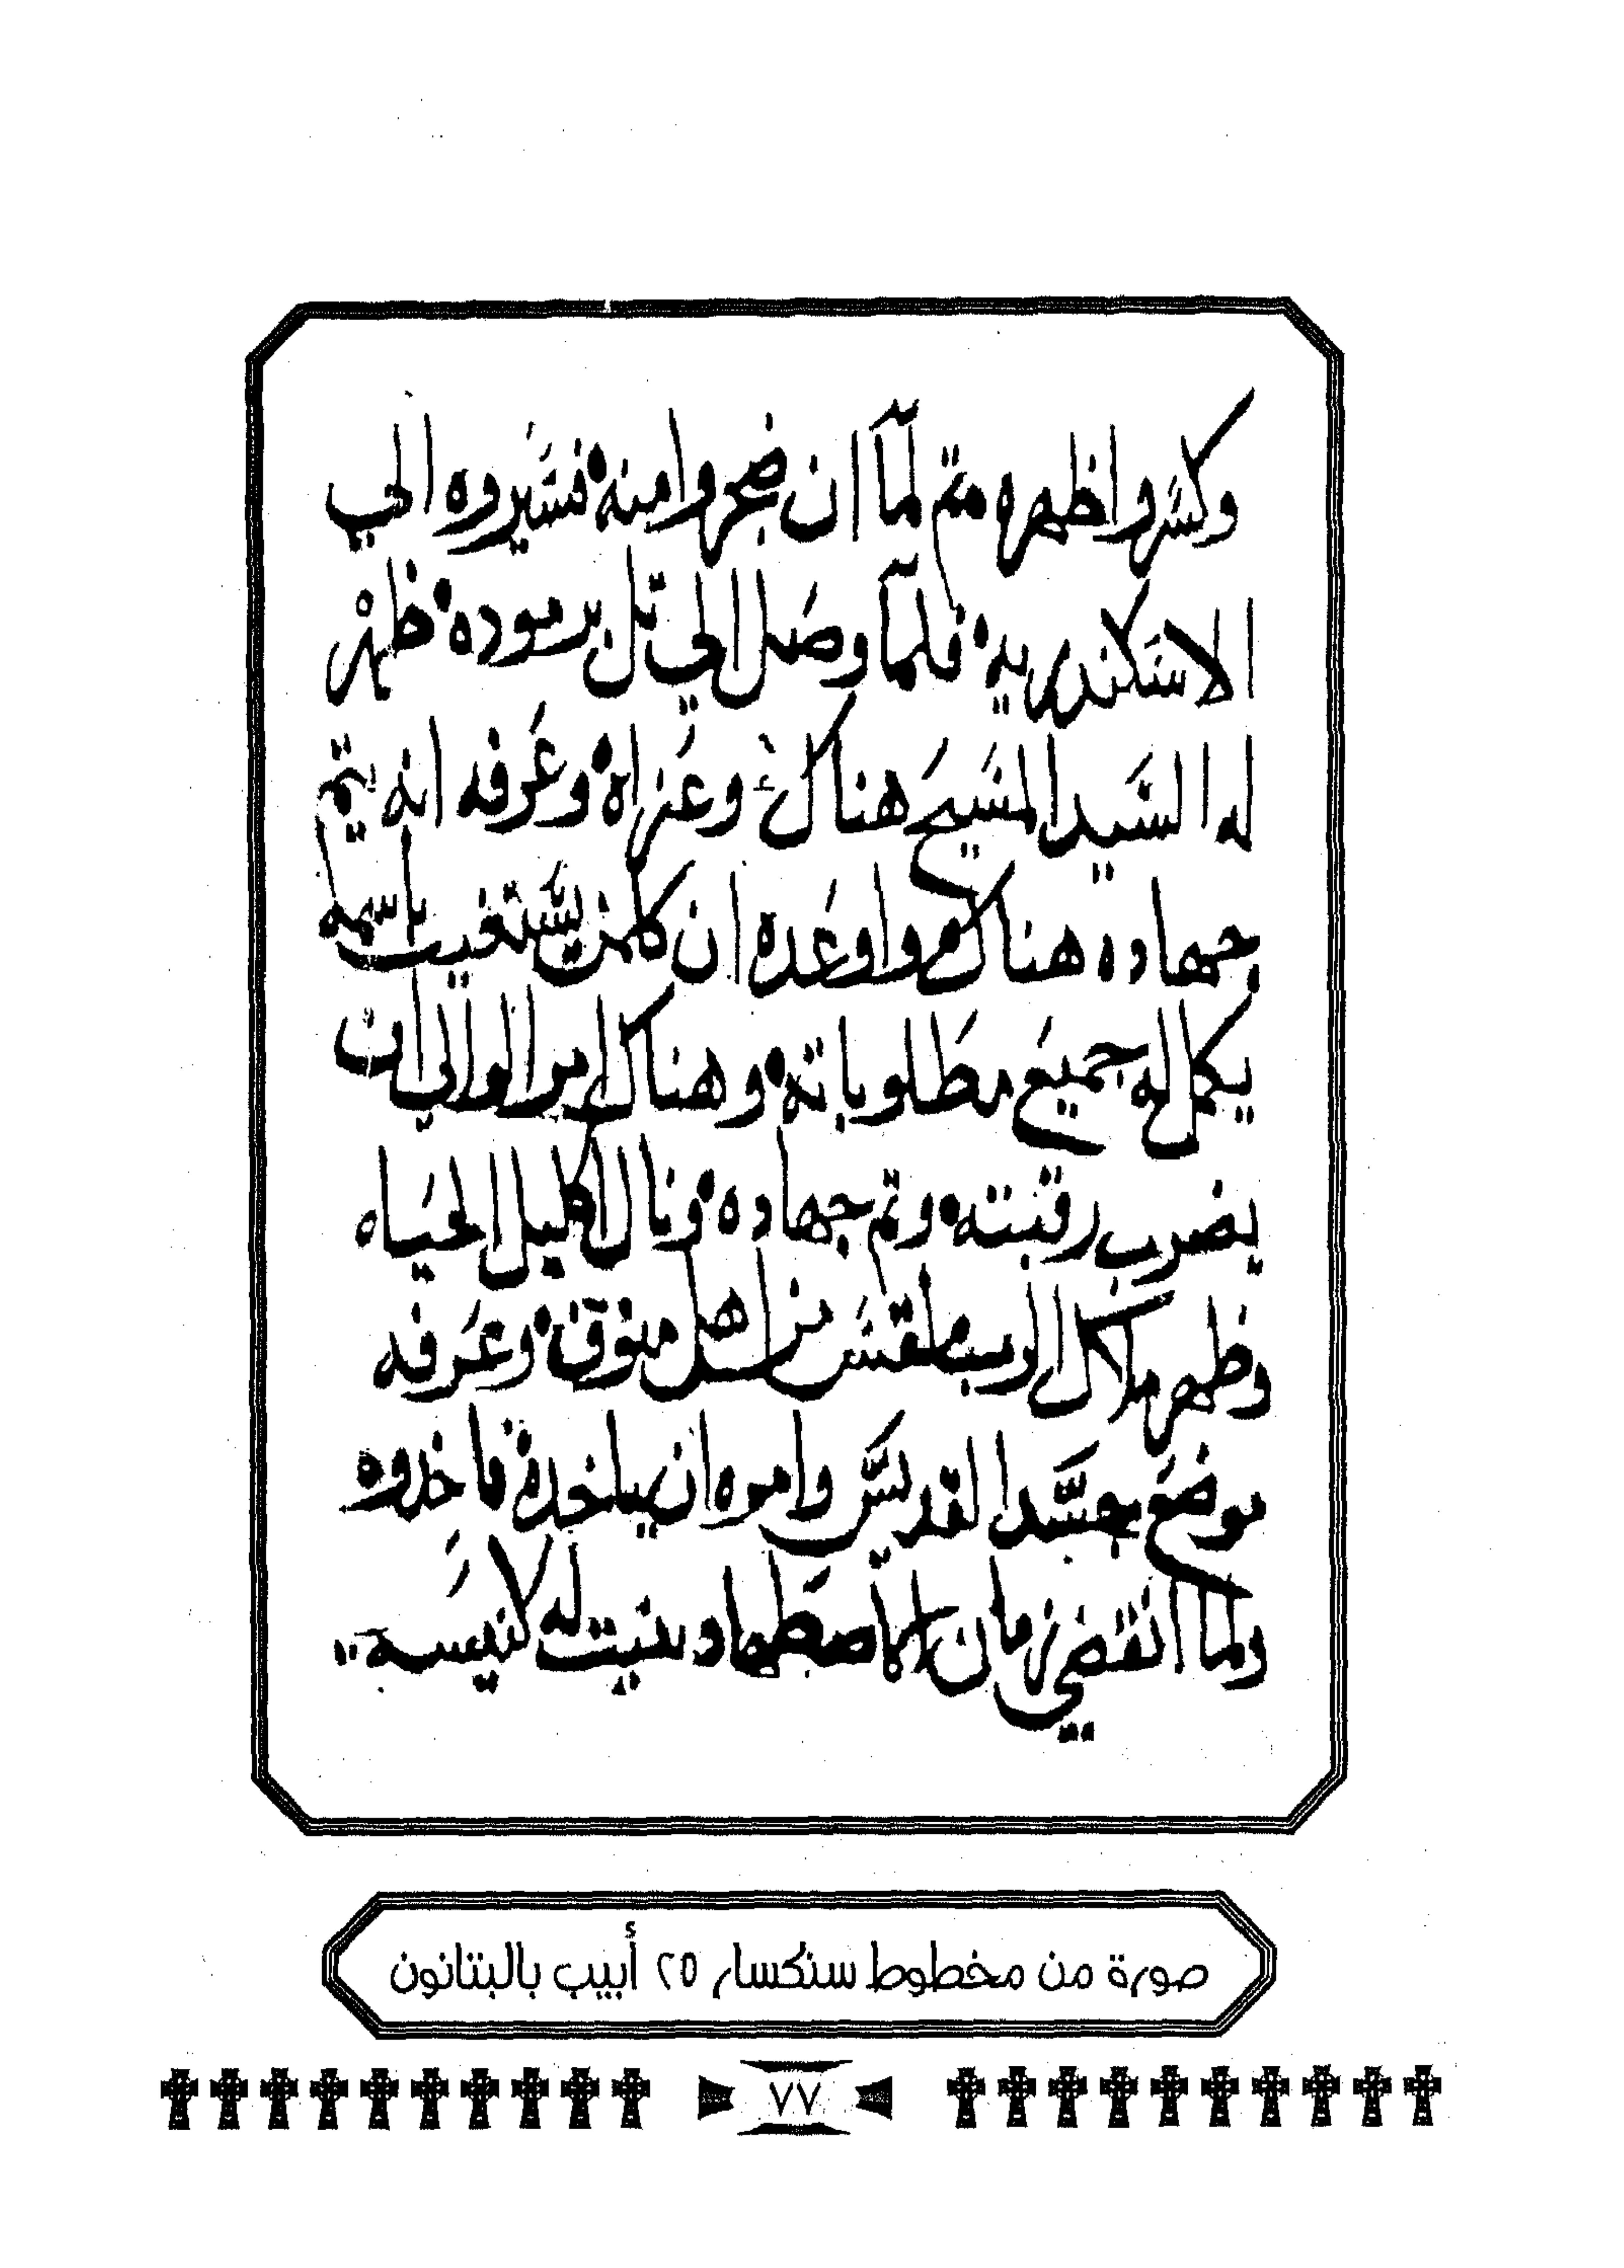 وكسروا ظهره ثم لما ان ضجروا منه فسيروه الي
الاسكندريه فلما وصل الي تل برموده ظهر
له السيد المسيح هناك وعزاه وعرفه انه يتم
جهاده هناك واوعده ان كلمن يستغيت باسمه
يكمل له جميع مطلوباته وهناك امر الوالي ان
يضرب رقبته وتم جهاده ونال اكليل الحياه
وظهر ملاك الرب من اهل منوف وعرفه
بوضع جسد القديس وامره ان ياخده فاخدوه
ولما انقضي زمان الاضطهاد بنيت له كنيسه
صورة من مخطوط سنكسار ٢٥ أبيب بالبتانون
٧٧